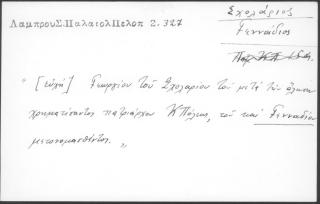 ΛαμπρουΣ.ΠαλαιολΠελοπ 2.327
Σχολάριος
Γεννάδιος
"[εὐχὴ] Γεωργίου τοῦ Σχολαρίου τοῦ μετὰ τὴν ἅλωσιν
χρηματίσαντος πατριάρχου ΚΠόλεως, τοῦ καὶ Γενναδίου
μετονομασθέντος. "